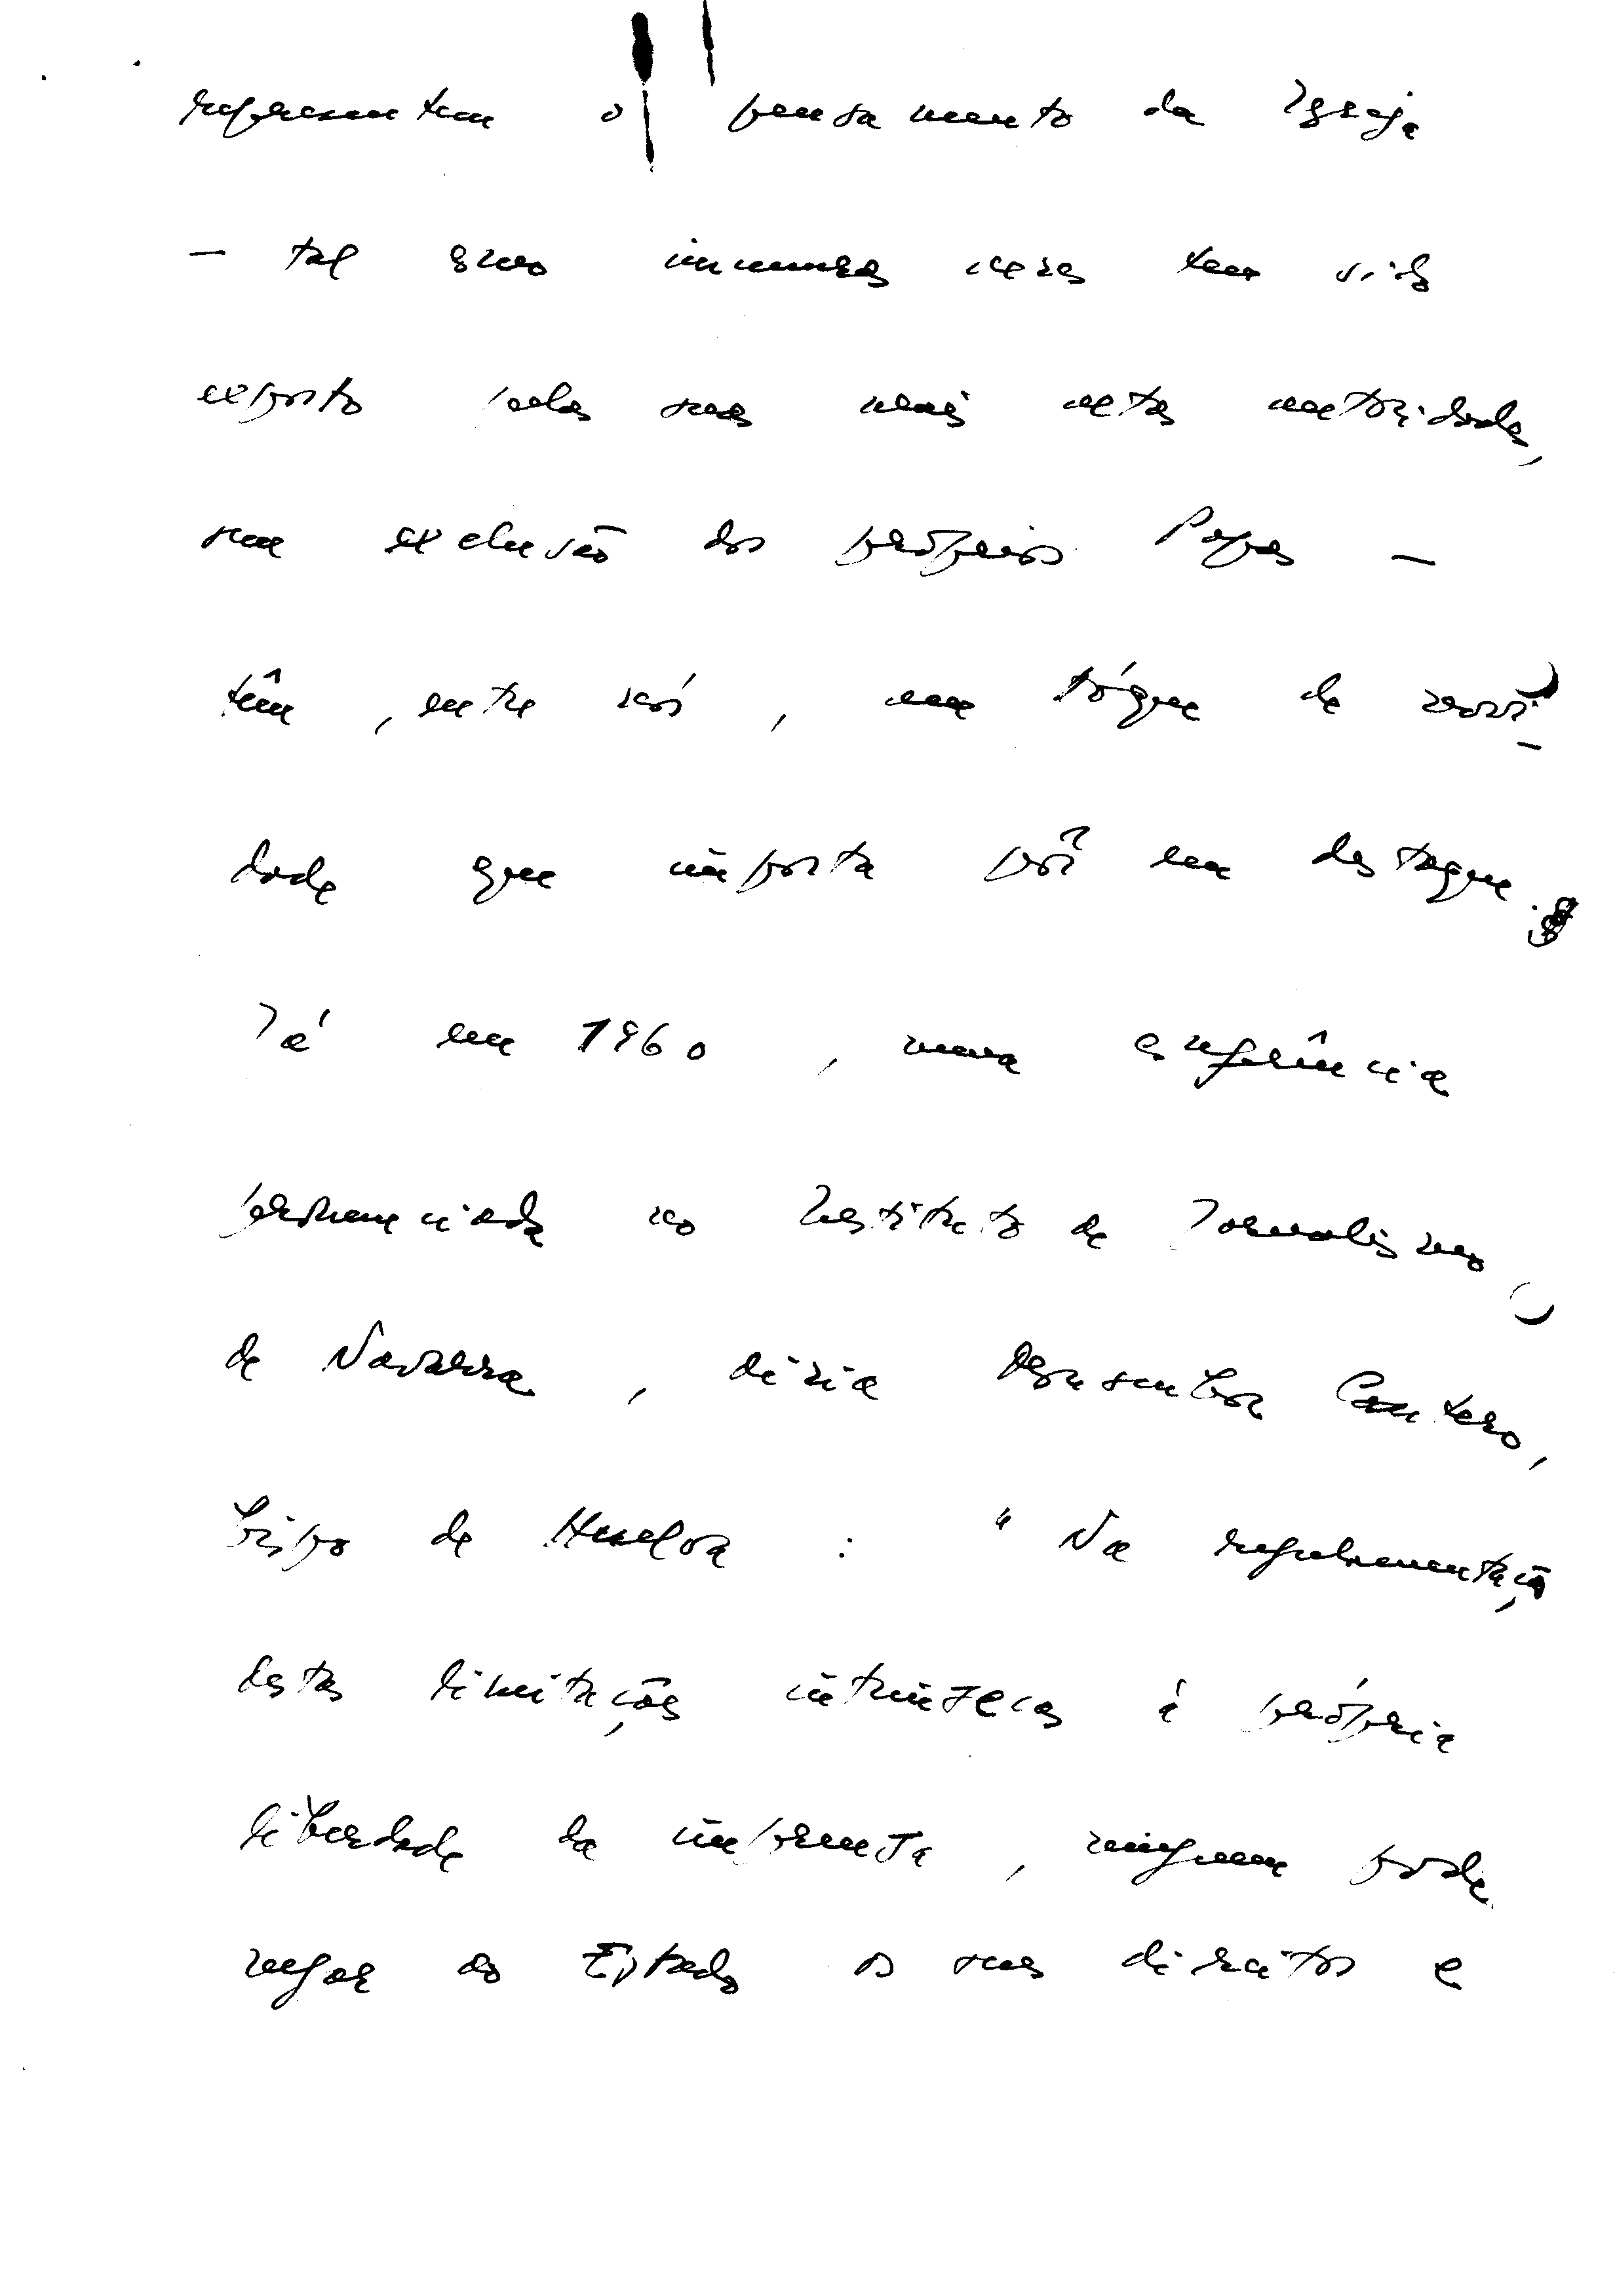 representem o pensamento da Igreja
— tal como inumeras vezes tem sido
exposto pelas suas mais altas autoridades,
sem exclusão dos próprios Papas —
têm, entre nós, um tóque de novi-
dade que importa pôr em destaque.
Já em 1960, numa conferência
pronunciada no Instituto de Jornalismo
de Navarra, dizia Monsenhor Cantero,
bispo de Huelva: "Na regulamentação
destas limitações intrínsecas à própria
liberdade da imprensa, ninguem pode
negar ao Estado os seus direitos e